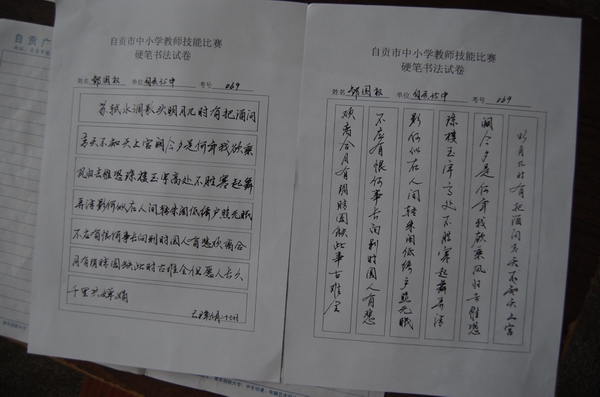 自贡广
自贡市中小学教师技能比赛
硬笔书法试卷
姓名 国权 单位 考号 069
苏轼水调歌头明月几时有把酒问
青天不知天上宫阙今夕是何年我欲乘
风归去唯恐琼楼玉宇高处不胜寒起舞
弄清影何似在人间转朱阁低绮户照无眠
不应有恨何事长向别时圆人有悲欢离合
月有阴晴圆缺此事古难全但愿人长久
千里共婵娟
自贡市中小学教师技能比赛
硬笔书法试卷
姓名 国权 单位 考号 069
明月几时有把酒问青天不知天上宫
阙今夕是何年我欲乘风归去唯恐
琼楼玉宇高处不胜寒起舞弄清
影何似在人间转朱阁低绮户照无眠
不应有恨何事长向别时圆人有悲
欢离合月有阴晴圆缺此事古难全